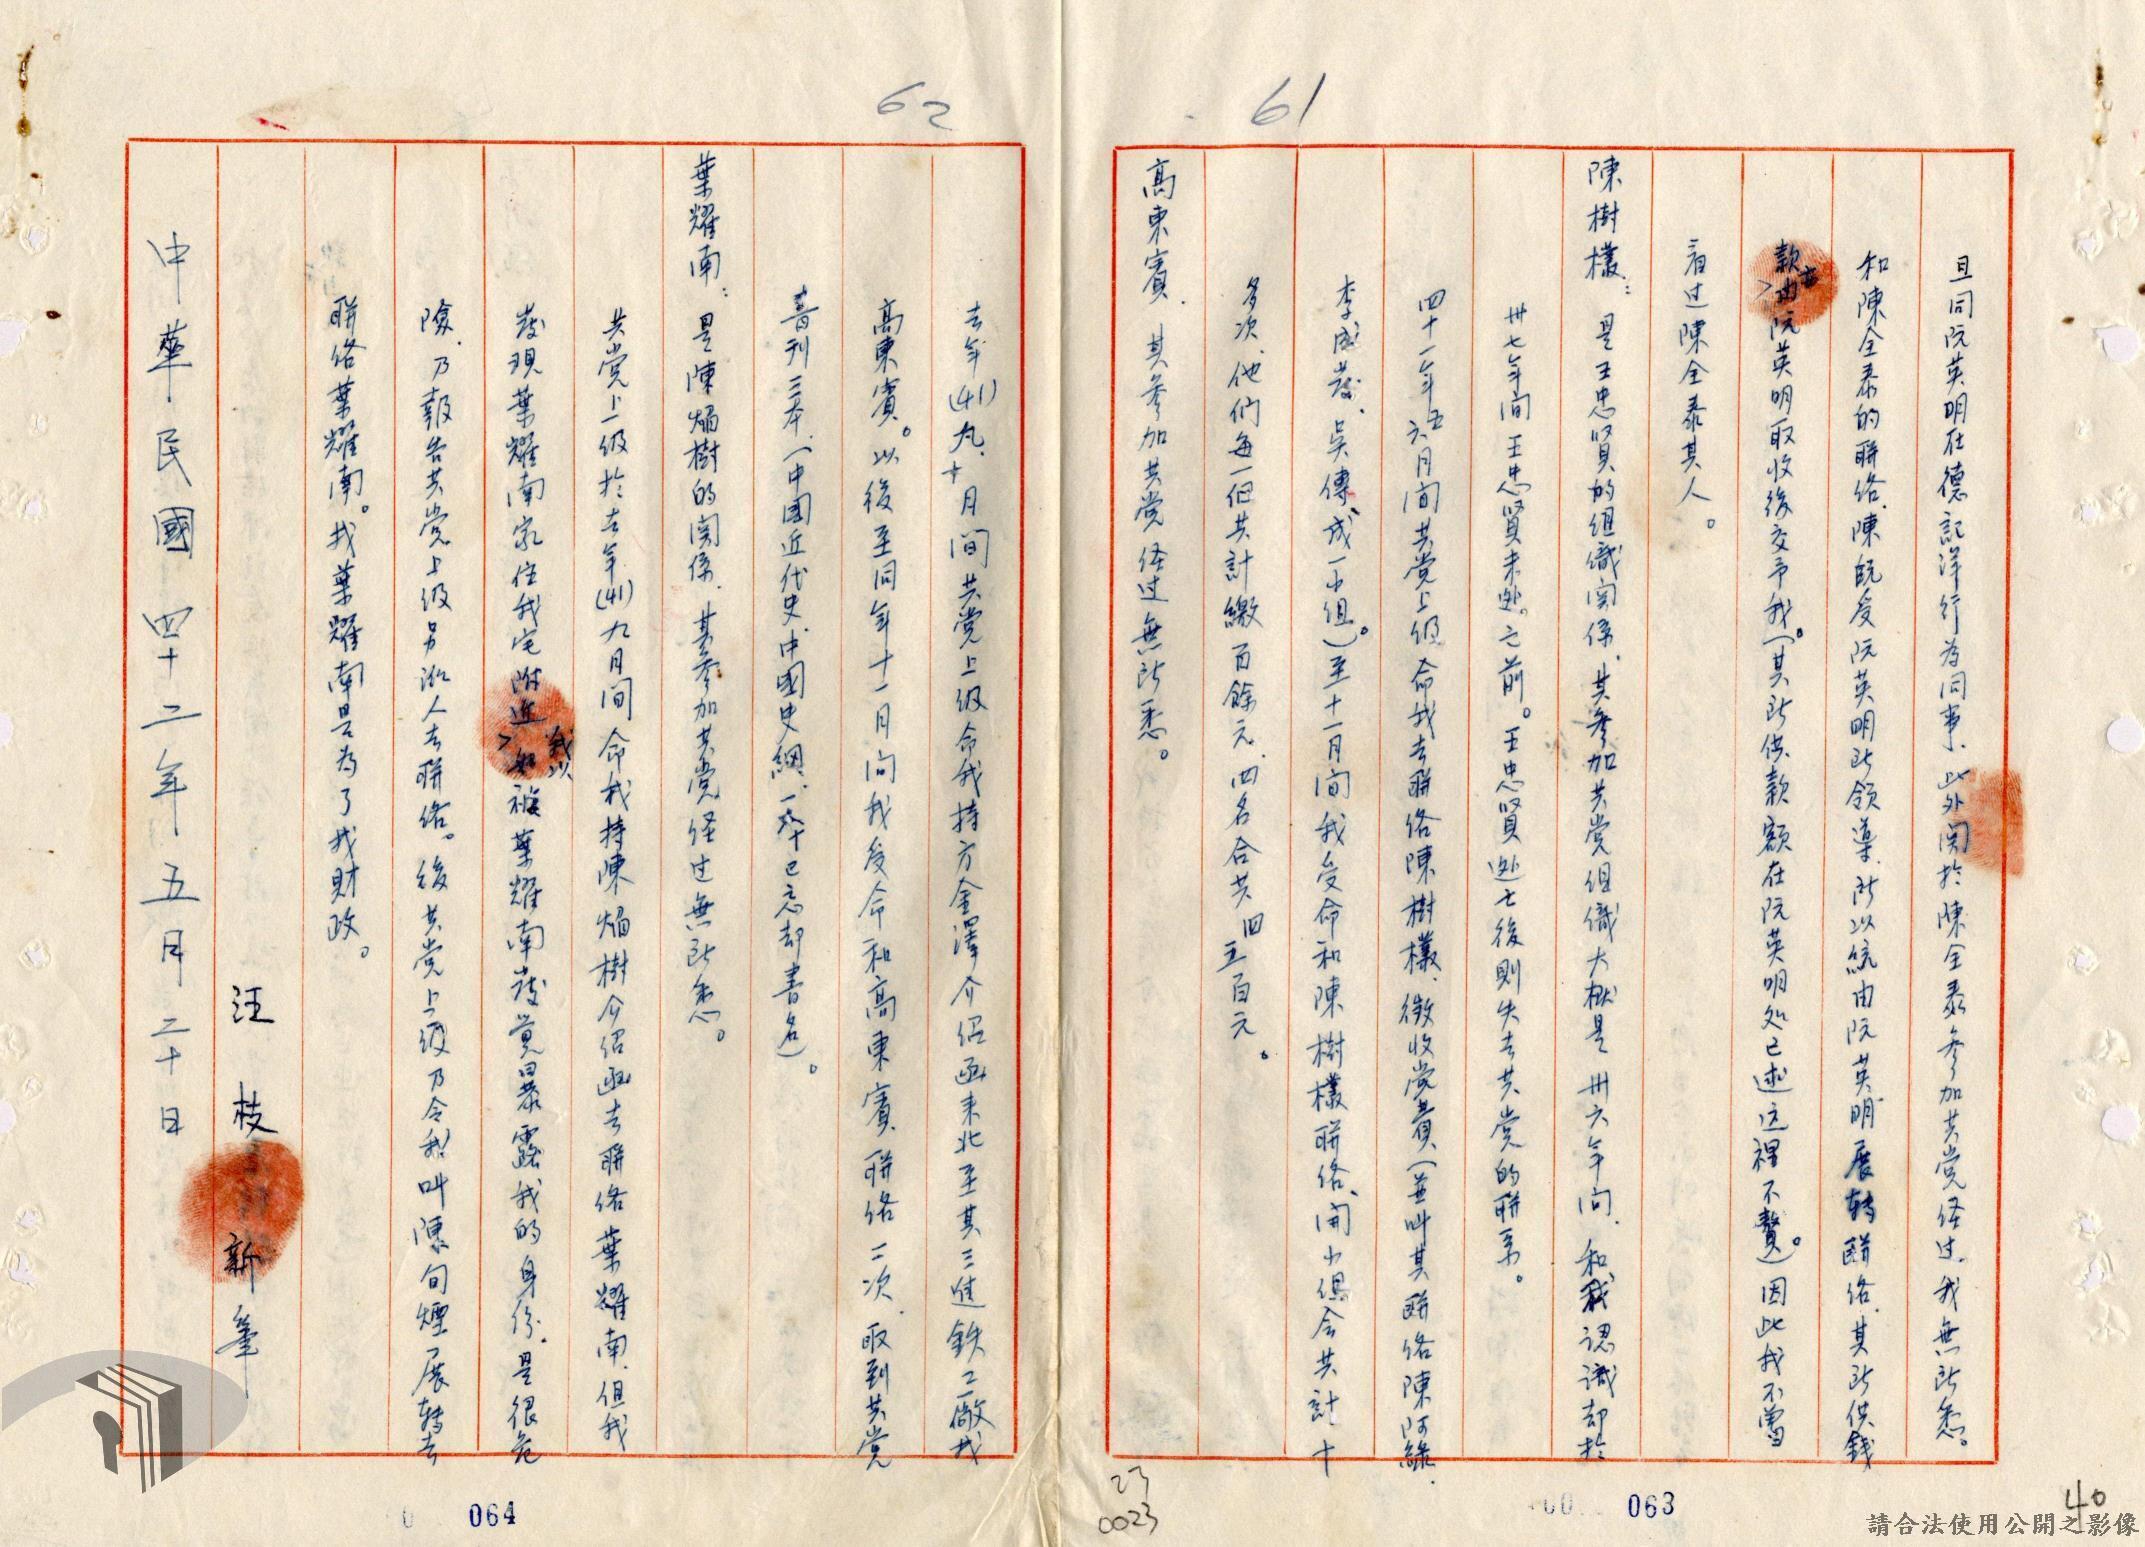 61
旦同阮英明在德記洋行為同事、此外関於陳全泰参加共党経过、我無所悉。
和陳全泰的聯絡、陳既受阮英明所領導、所以統由阮英明展转聯絡、其所供錢
款亦由阮英明取收後交予我(其所供款額在阮英明処已述这裡不贅)。因此我不曾
看过陳全泰其人。
陳樹樣：是王忠賢的組織関係、其参加共党組織大概是卅六年间、和我認識却於
卅七年间王忠賢未逝亡前。王忠賢逝亡後則失去共党的聯系。
四十一年五六月间共党上級命我去聯络陳樹樣、徴收党費(並叫其聯络陳阿綠、
李盛發、吳傳成一小组)。至十一月间我受命和陳樹樣聯络、開小組会共計十
多次、他們每一個共計繳百餘元、四名合共四五百元。
高東賓、其参加共党経过無所悉。
063
40
23
0023
62
去年(41)九、十月间共党上级命我持方金澤介绍函東北至其三進鉄工廠找
高東賓。以後至同年十一月间我受命和高東賓聯络二次、取到共党
書刊三本、(中国近代史、中國史綱、一本已忘却書名)。
葉耀南：是陳焔樹的関係、其参加共党経过無所悉。
共党上级於去年(41)九月间命我持陳焔樹介绍函去聯络葉耀南、但我
發現葉耀南家住我宅附近我以如被葉耀南發覚暴露我的身份、是很危
險、乃報告共党上级另派人去聯络。後共党上级乃令我叫陳旬煙展转去
聯络葉耀南。找葉耀南是為了找財政。
汪枝 新筆
中華民國四十二年五月二十日
064
請合法使用公開之影像